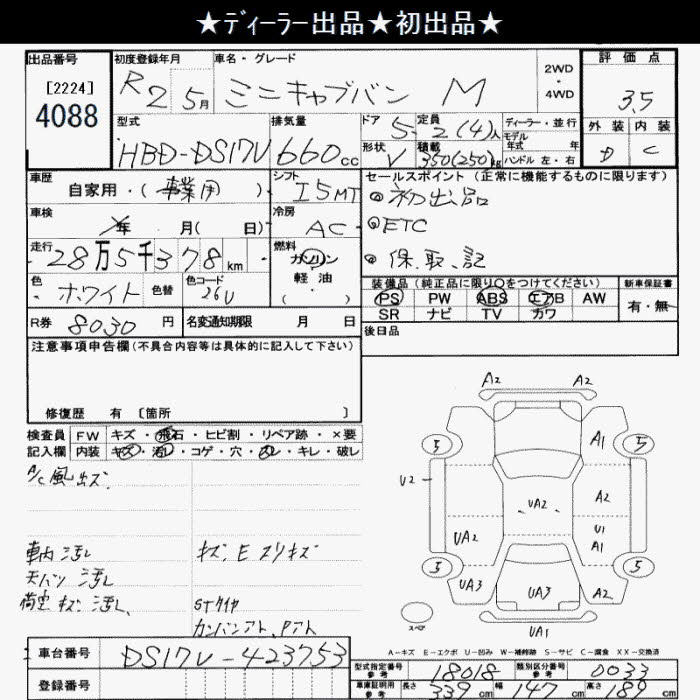 ★ディーラー出品★初出品★
出品番号
[2224]
4088
初度登録年月
R2 5月
車名・グレード
ミニキャブバン M
2WD
・
4WD
評価点
3.5
外装 内装
D C
型式
HBD-DS17V
排気量
660cc
ドア
5
定員
2(4)人
形状
V
積載
350(250)kg
ディーラー・並行
モデル
年式 年
ハンドル 左・右
車歴
自家用・(事業用)
シフト
I5MT
車検
年 月( 日)
冷房
AC
走行
28万5千378km
燃料
ガソリン
軽油
( )
色
ホワイト
色替
色コード
26U
R券 8030円
名変通知期限 月 日
セールスポイント(正常に機能するものに限ります)
◎初出品
◎ETC
◎保、取、記
装備品(純正品に限り○をつけてください)
PS PW ABS エアB AW
SR ナビ TV カワ
新車保証書
有・無
後日品
注意事項申告欄(不具合内容等は具体的に記入して下さい)
修復歴 有 [箇所 ]
検査員
記入欄
FW キズ・飛石・ヒビ割・リペア跡・×要
内装 キズ・汚レ・コゲ・穴・ヌレ・キレ・破レ
A/C風出ズ
車内汚レ
天バリ汚レ
荷室キズ汚レ、
キズ、Eスリキズ
STタイヤ
カンバンアト、Pアト
A2 A2
5 5
A1
U2
A2
UA2
U1
A1
UA2
5 5
UA3
UA3
A2
スペア
UA1
A-キズ E-エクボ U-凹み W-補修跡 S-サビ C-腐食 XX-交換済
車台番号
DS17V-423753
登録番号
型式指定番号
参考
18018
類別区分番号
参考
0033
車庫証明用
参考
長さ 339cm
幅 147cm
高さ 89cm